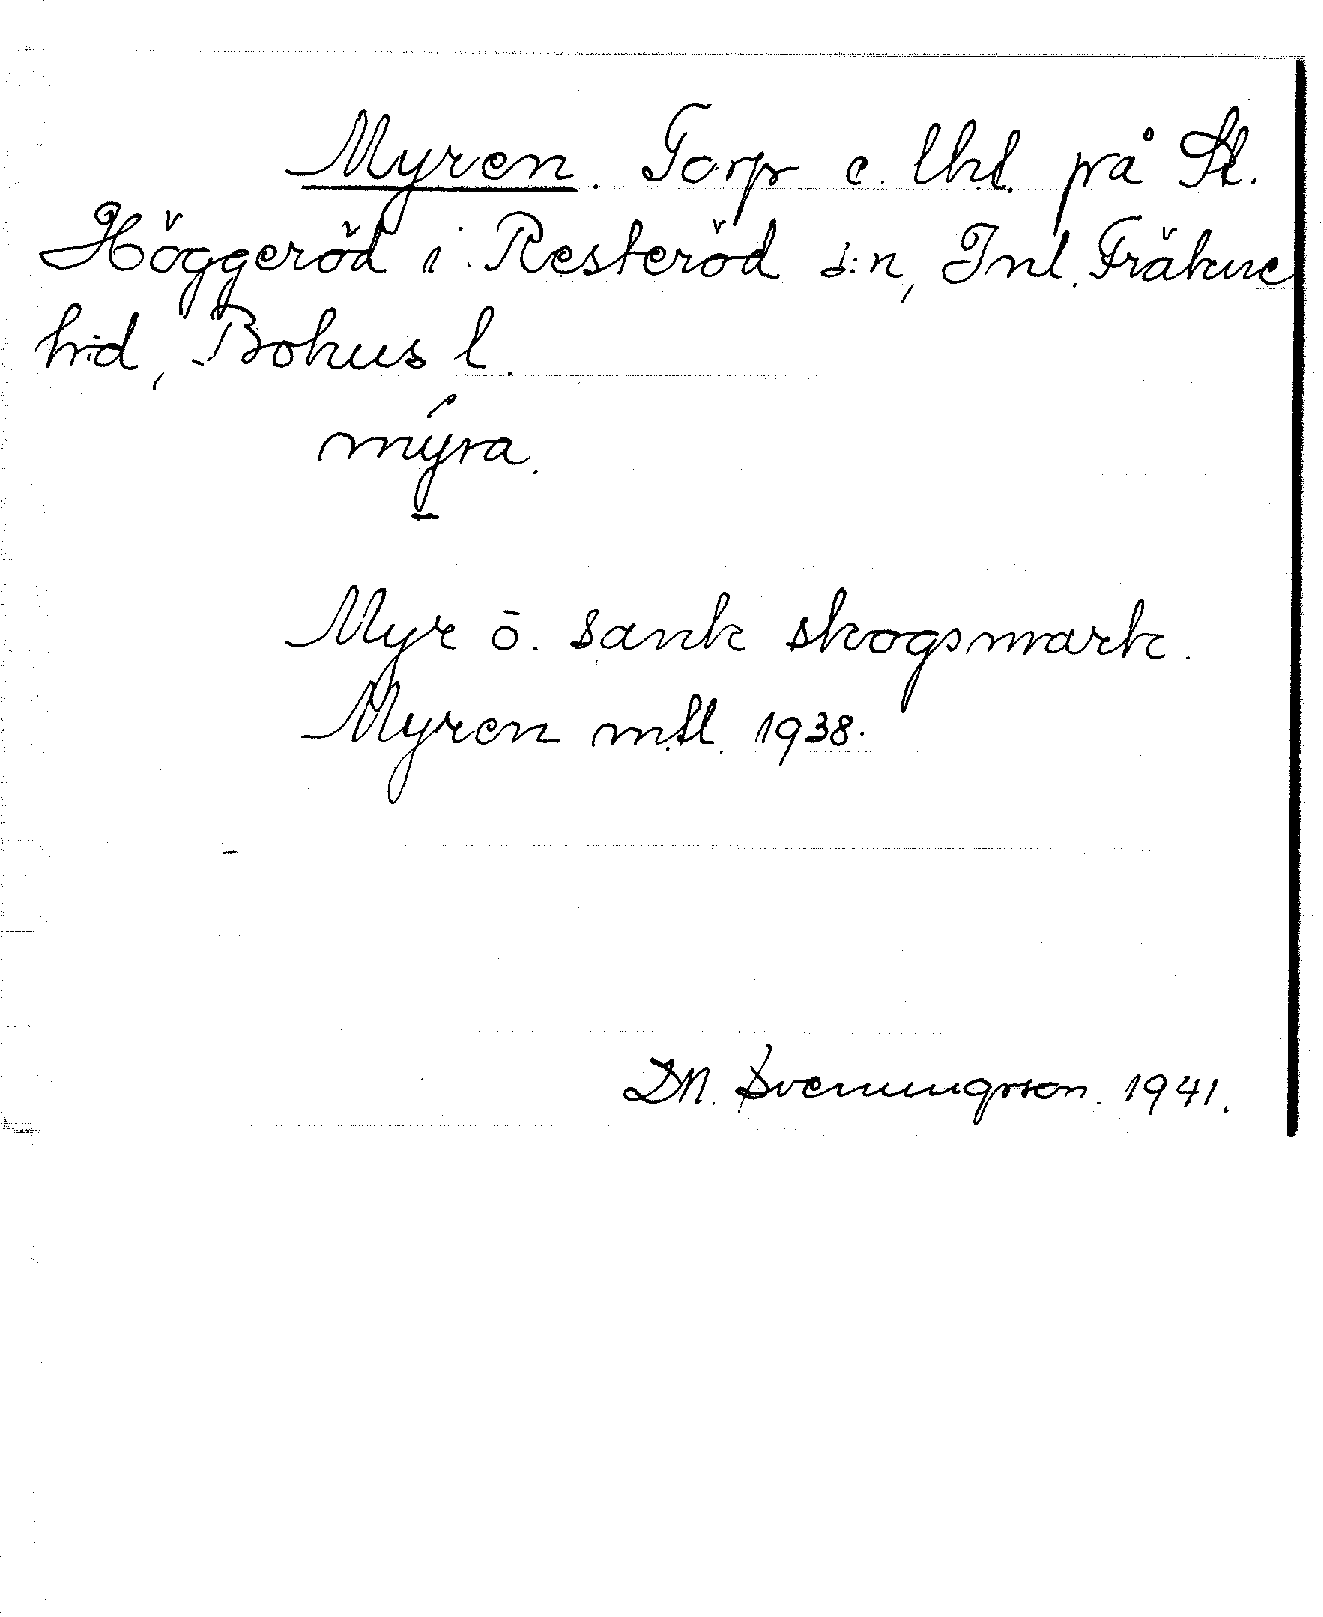 Myren. Torp o. lht. på St.
Höggeröd i Resteröd s:n, Inl. Fräkne
hd, Bohus l.
mýra.
Myr o. sank skogsmark.
Myren mtl. 1938.
D.N. Svenungsson. 1941.